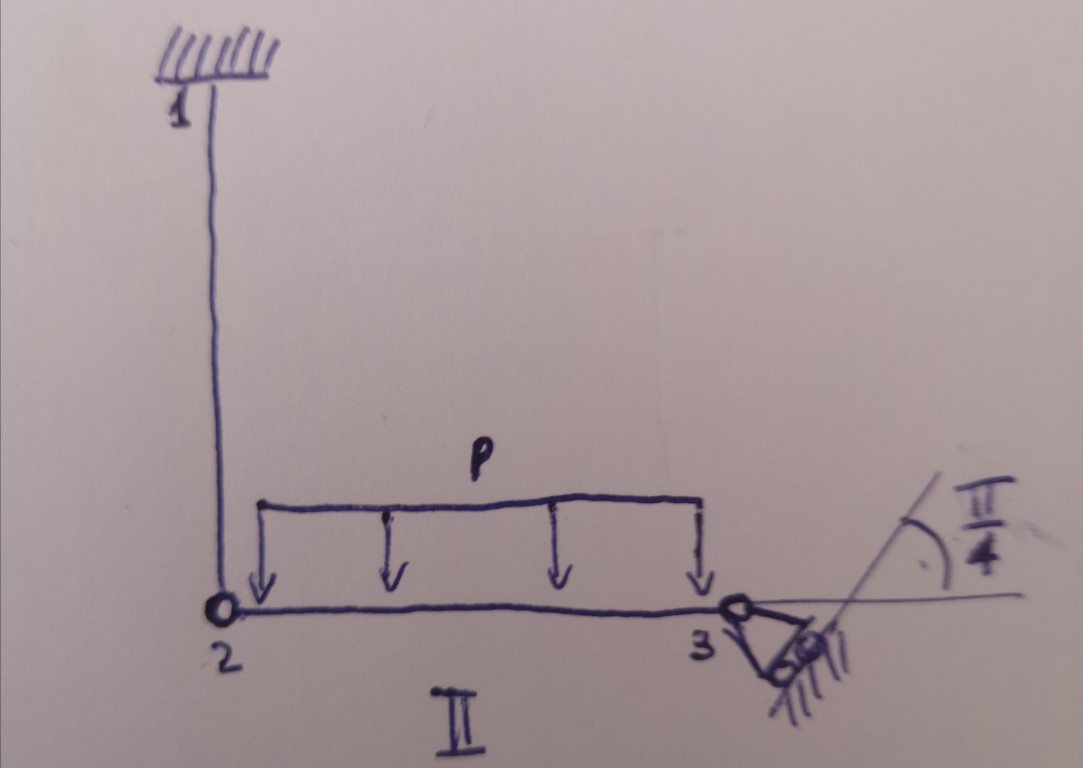 1
P
π
4
2
3
II